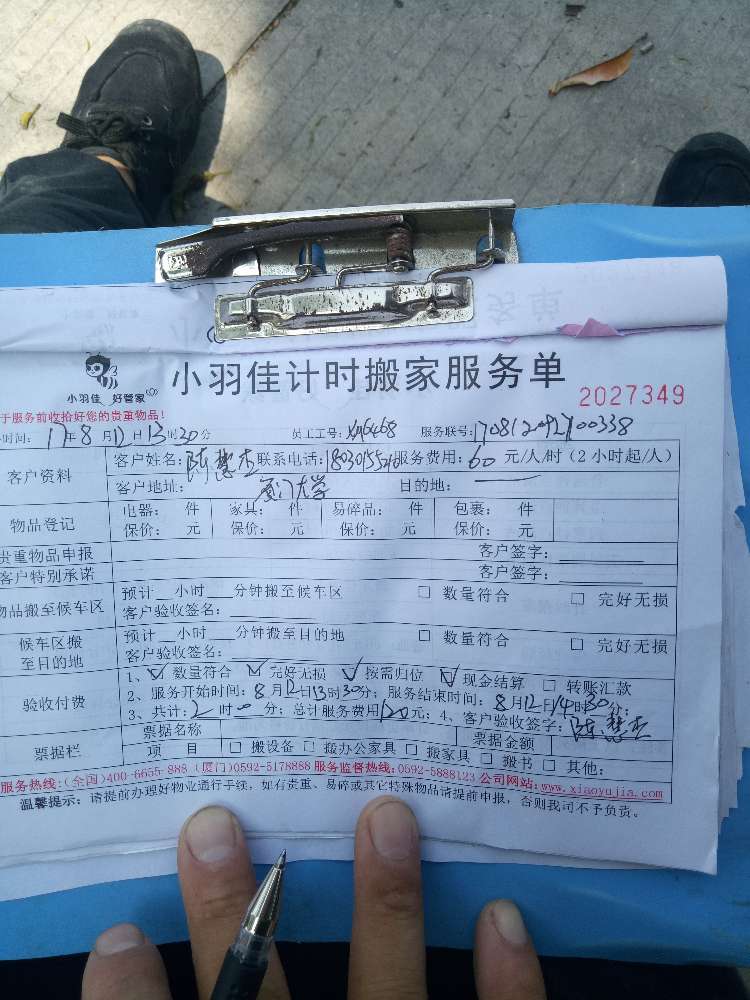 小羽佳 好管家
小羽佳计时搬家服务单
2027349
于服务前收拾好您的贵重物品!
时间: 17年8月12日13时20分 员工工号: 服务联号:
客户资料
客户姓名:陈慧杰 联系电话: 服务费用:60元/人/时(2小时起/人)
客户地址: 厦门大学 目的地:
物品登记
电器: 件 家具: 件 易碎品: 件 包裹: 件
保价: 元 保价: 元 保价: 元 保价: 元
贵重物品申报 客户签字:
客户特别承诺 客户签字:
物品搬至候车区
预计__小时__分钟搬至候车区 □ 数量符合 □ 完好无损
客户验收签名:
候车区搬
至目的地
预计__小时__分钟搬至目的地 □ 数量符合 □ 完好无损
客户验收签名:
验收付费
1、☑ 数量符合 ☑ 完好无损 ☑ 按需归位 ☑ 现金结算 □ 转账汇款
2、服务开始时间:8月12日13时30分;服务结束时间:8月12日14时30分;
3、共计:2时0分;总计服务费用120元;4、客户验收签字:陈慧杰
票据栏
票据名称 票据金额
项 目 □ 搬设备 □ 搬办公家具 □ 搬家具 □ 搬书 □ 其他:
服务热线:(全国)400-6655-888 (厦门)0592-5178888 服务监督热线:0592-5888123 公司网站:www.xiaoyujia.com
温馨提示:请提前办理好物业通行手续,如有贵重、易碎或其它特殊物品请提前申报,否则我司不予负责。